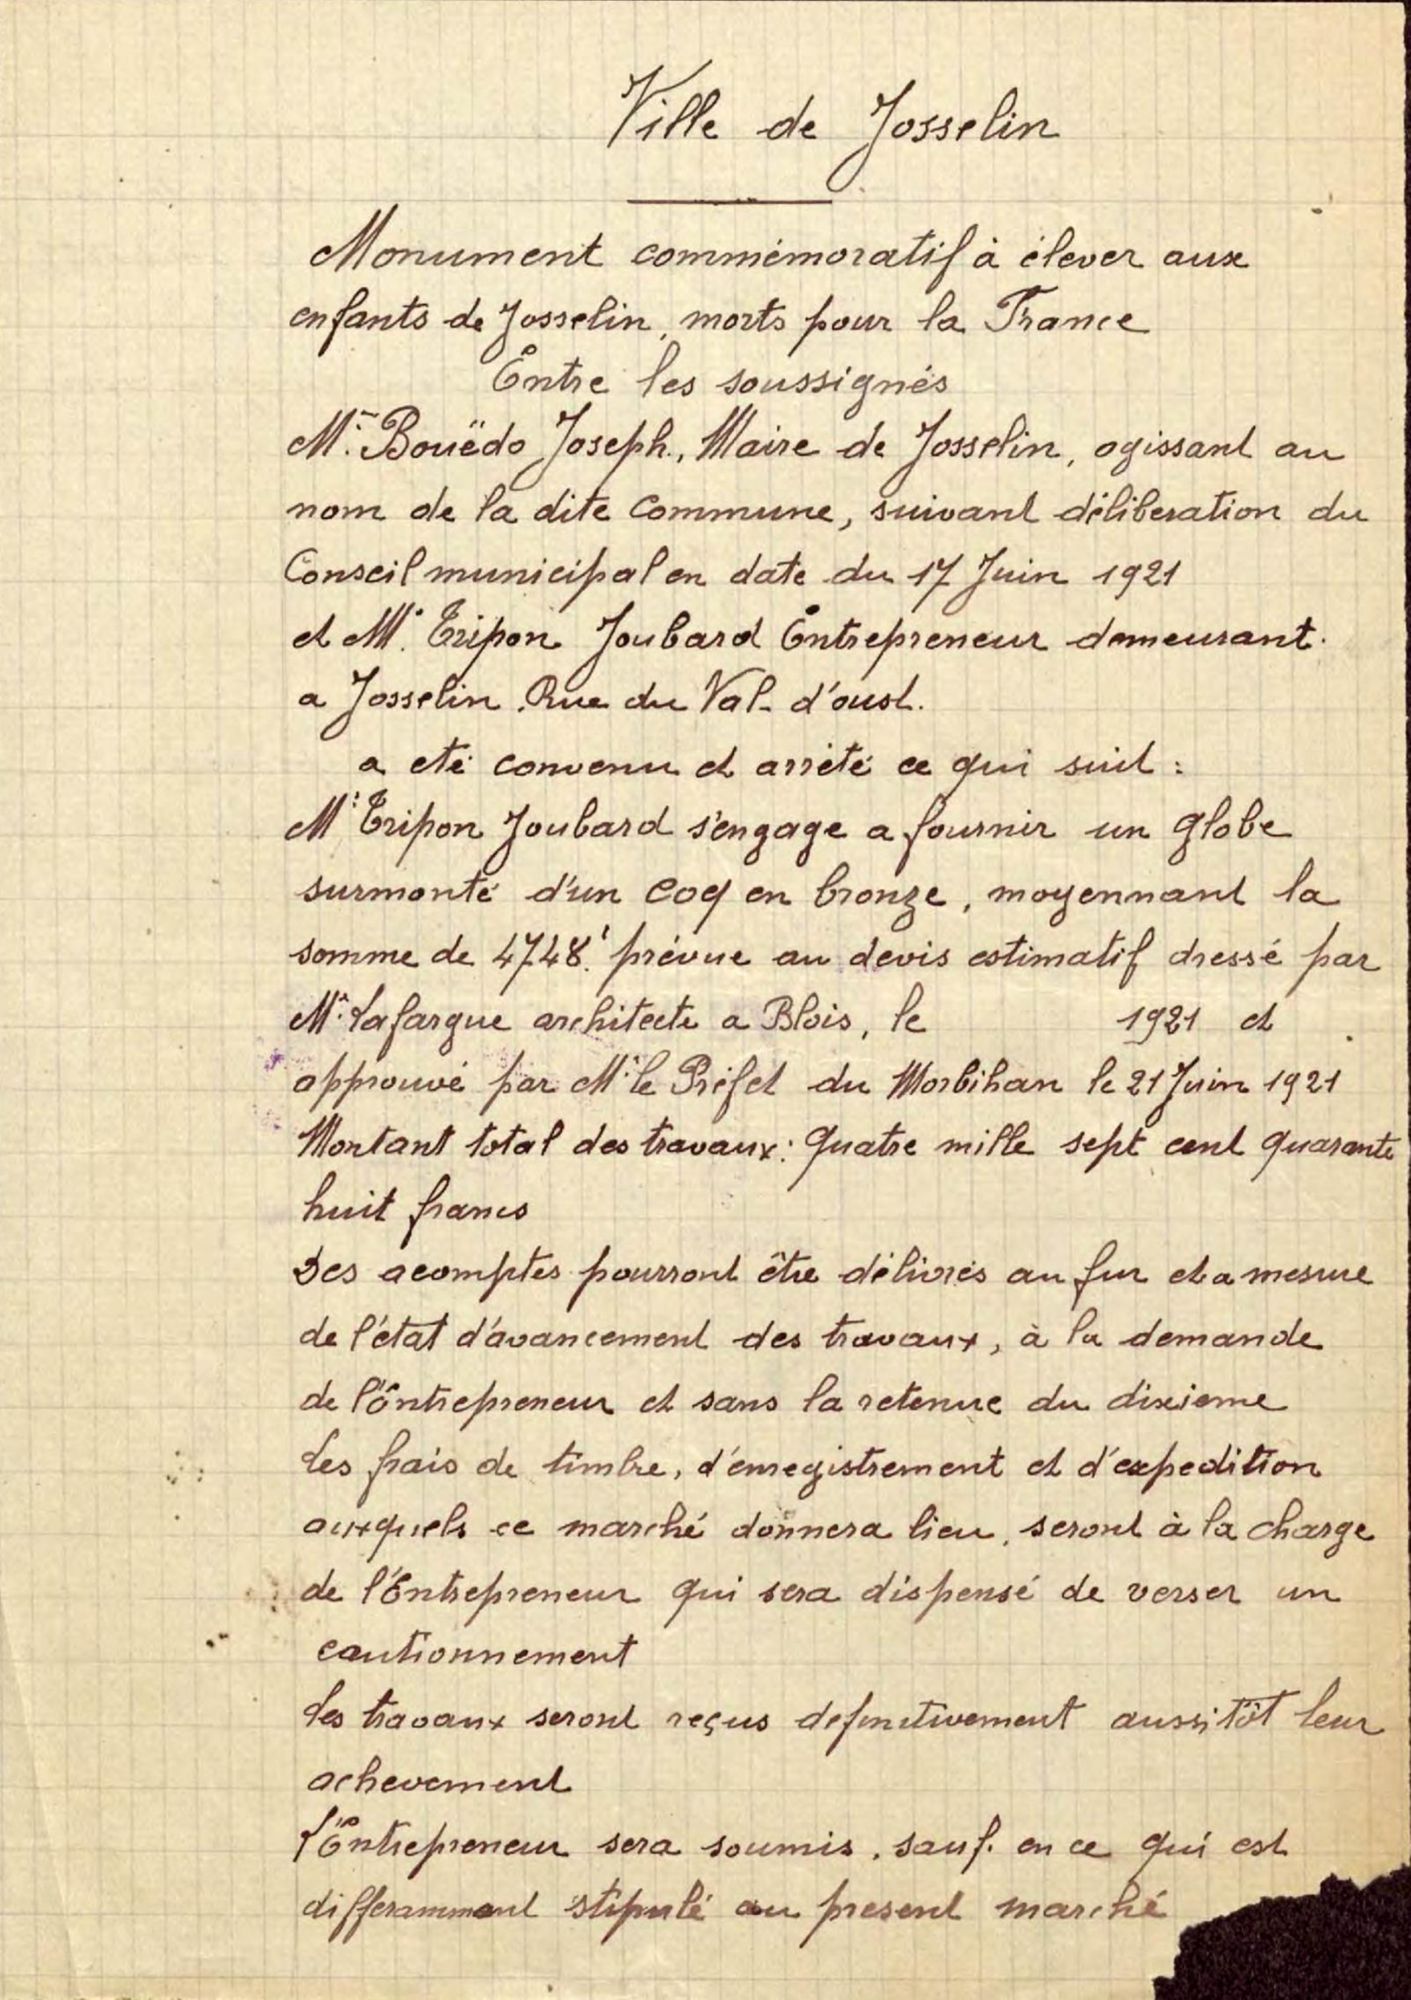 Ville de Josselin
Monument commémoratif à élever aux
enfants de Josselin, morts pour la France
Entre les soussignés
Mr. Bouëdo Joseph, Maire de Josselin, agissant au
nom de la dite Commune, suivant délibération du
Conseil municipal en date du 17 Juin 1921
et Mr. Tripon Joubard Entrepreneur demeurant
a Josselin. Rue du Val-d'oust.
a eté convenu et arrêté ce qui suit :
Mr Tripon Joubard s'engage a fournir un globe
surmonté d'un coq en bronze, moyennant la
somme de 4748f. prévue au devis estimatif dressé par
Mr. Lafargue architecte a Blois, le 1921 et
approuvé par Mr. le Préfet du Morbihan le 21 Juin 1921
Montant total des travaux : Quatre mille sept cent quarante
huit francs
Des acomptes pourront être délivrés au fur et a mesure
de l'état d'avancement des travaux, à la demande
de l'Entrepreneur et sans la retenue du dixieme
Les frais de timbre, d'enregistrement et d'expedition
auxquels ce marché donnera lieu, seront à la charge
de l'Entrepreneur qui sera dispensé de verser un
cautionnement
Les travaux seront reçus definitivement aussitôt leur
achevement
L'Entrepreneur sera soumis, sauf en ce qui est
differamment stipulé au present marché